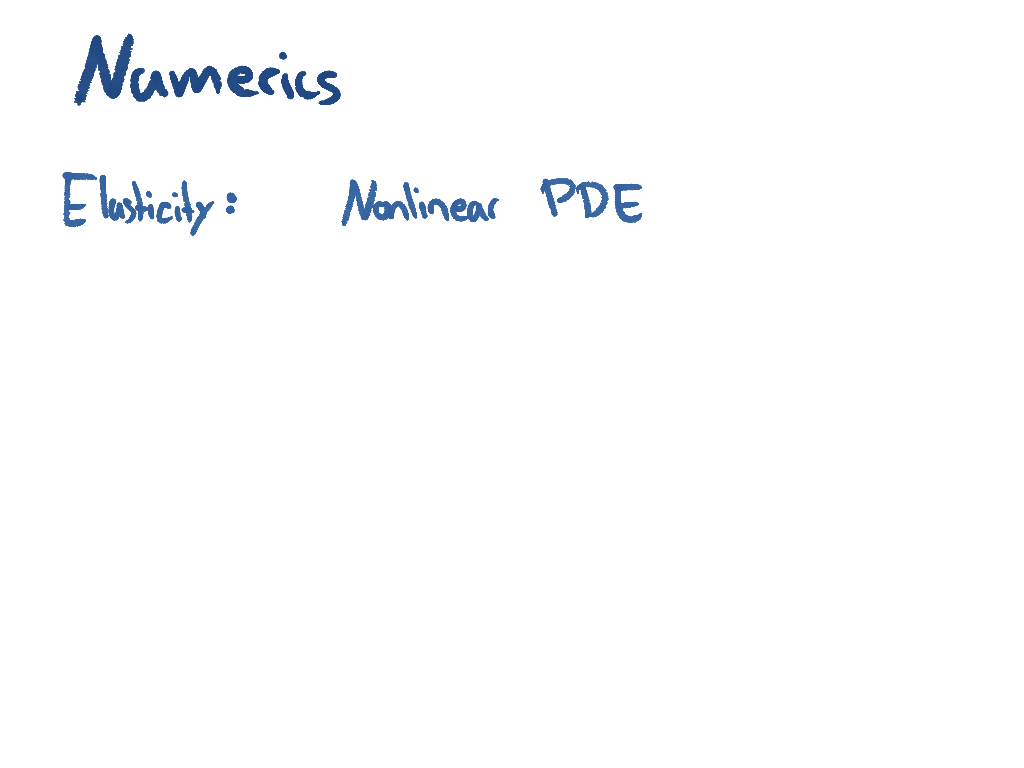 Numerics
Elasticity: Nonlinear PDE